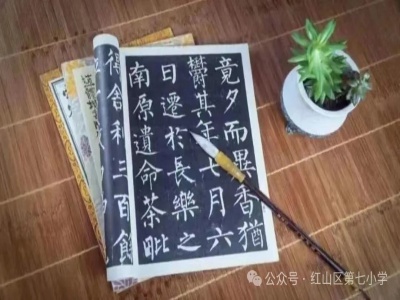 竟夕而異香猶
欝其年七月六
日遷於長樂之
南原遺命荼毗
得舍利三百餘
公众号·红山区第七小学